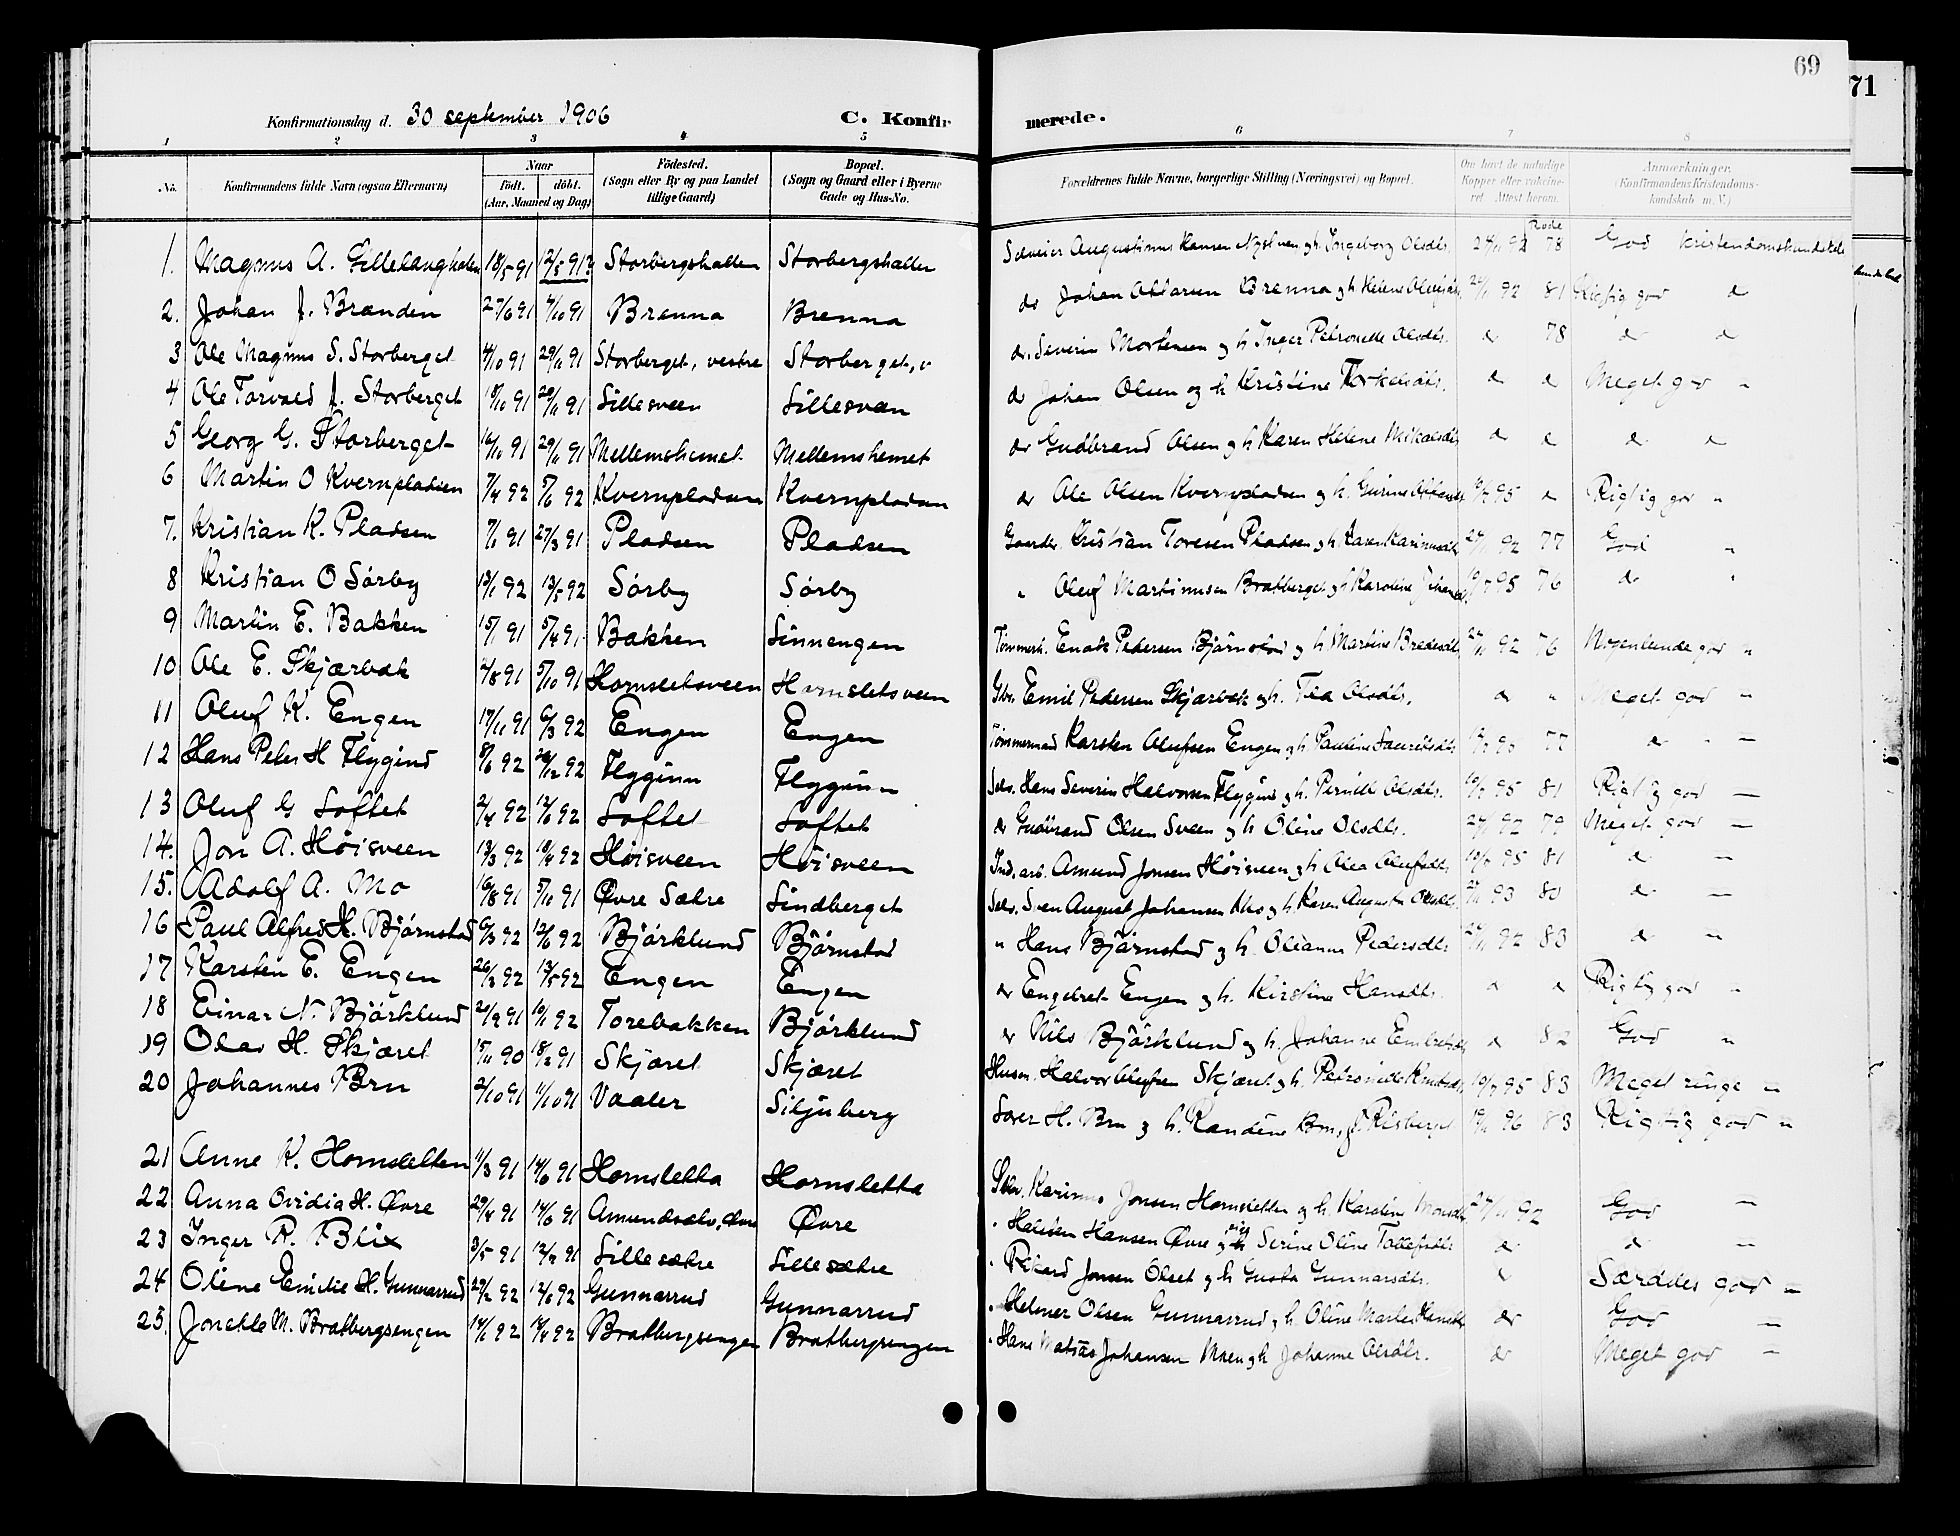 69
71
Konfirmationsdag d. 30 september 1906 C. Konfir merede.
1 2 3 4 5 6 7 8
No. Konfirmandens fulde Navn (ogsaa Efternavn) Naar født. døbt. (Aar, Maaned og Dag) Fødested. (Sogn eller By og paa Landet tillige Gaard) Bopæl. (Sogn og Gaard eller i Byerne Gade og Hus-No. Forældrenes fulde Navne, borgerlige Stilling (Næringsvei) og Bopæl. Om havt de naturlige Kopper eller vaccineret. Attest herom. Anmærkninger. (Konfirmandens Kristendomskundskab m. V.)
1. Magnus A. Gillelanghalen 18/5 91 12/5 91? Storbergshallen Storbergshallen Augustinus Hansen og h. Ingeborg Olsdtr. 24/11 92 78 God Kristendomskundskab
2. Johan J. Brænden 27/6 91 4/10 91 Brenna Brenna do Johan Brenna og h Helene 92 81 Rigtig god do
3 Ole Magnus S. Storberget 4/10 91 29/11 91 Storberget, vestre Storberget, v do. Severin Mortensen og h Inger Petronelle Olsdtr. do 78 do do
4 Ole Torvald J. Storberget 18/10 91 29/11 91 Lillesveen Lillesveen do Johan Olsen og h Kristine Torkelsdtr. do do Meget god "
5 Georg G. Storberget 16/10 91 29/11 91 Mellemshemet Mellemshemet do Gudbrand Olsen og h Karen Helene Mikalsdtr do do do do
6 Martin O Kvernpladsen 7/4 92 5/6 92 Kvernpladsen Kvernpladsen do Ole Olsen Kvernpladsen og h. Gurine 95 do Rigtig god "
7. Kristian K. Pladsen 7/1 91 27/3 91 Pladsen Pladsen Gaardbr. Kristian Toresen Pladsen og h. Karen Karinusdtr 92 77 God "
8 Kristian O Sørby 13/1 92 13/5 92 Sørby Sørby " Oluf Martinusen Bratberget og h Karoline 10/7 95 76 do "
9 Martin E. Bakken 15/1 91 5/4 91 Bakken Linnengen Tømmerh. Enok Pedersen Bjørnstad og h Martine Bredesdtr 92 76 Nogenlunde god "
10 Ole E. Skjærbæk 2/8 91 5/10 91 Hornsletsveen Hornsletsveen Gbr. Emil Pedersen Skjærbæk og h. Tea Olsdtr. do " Meget god "
11 Oluf K. Engen 17/11 91 6/3 92 Engen Engen Tømmermand Karsten Olufsen Engen og h Pauline Lauritsdtr 77 do "
12 Hans Peter H Flygind 8/6 92 26/12 92 Flyginn Flyginn Selv. Hans Severin Halvorsen Flygind og h. Pernille Olsdtr. 10/7 95 81 Rigtig god "
13 Oluf G Loftet 2/4 92 12/6 92 Loftet Loftet do Gudbrand Olsen Sveen og h Oline Olsdtr. 92 79 Meget god "
14. Jon A. Høisveen 13/3 92 18/4 92 Høisveen Høisveen Ind. arb. Amund Jonsen Høisveen og h Olea Olufsdtr 10/7 95 81 do "
15. Adolf A. Mo 16/8 91 5/10 91 Øvre Sætre Lindberget Selv. Sven August Johansen Mo og h. Karen Auguste Olsdtr. 93 80 do "
16 Paul Alfred H. Bjørnstad 6/3 92 12/6 92 Bjørklund Bjørnstad " Hans Bjørnstad og h. Oleanna Pedersdtr 92 83 do "
17 Karsten E. Engen 26/3 92 13/5 92 Engen Engen do Engebret Engen og h. Kirstine Hansdtr. do do Rigtig god "
18 Einar N. Bjørklund 21/9 91 10/1 92 Torebakken Bjørklund do Nils Bjørklund og h. Johanne do 82 God "
19 Olav H. Skjæret 15/11 90 18/3 91 Skjæret Skjæret Husm. Halvor Olufsen Skjæret og h. Petronille Knutsdtr 10/7 95 83 Meget ringe "
20 Johannes Bru 2/10 91 11/10 91 Vaaler Siljuberg H. Bru og h. Randine Bru, Risberget 96 83 Rigtig god "
21 Anne K. Hornsletten 11/3 91 14/6 91 Hornsletta Hornsletta Selv. Karinus Jonsen Hornsletten og h. Karoline 27/11 92 God "
22 Anna Ovidia H. Øvre 29/4 91 14/6 91 Øvre " Halvdan Hansen Øvre og pige Serine Oline Tollefsdtr do do "
23 Inger R. Blix 3/5 91 12/7 91 Lillesætre Lillesætre " Rikard Jonsen Olset og h Gusta Gunnarsdtr. do Særdeles god "
24 Oline Emilie H. Gunnarrud 29/2 92 12/6 92 Gunnarrud Gunnarrud " Helmer Olsen Gunnarrud og h. Oline Marie Hansdtr do God "
25. Jonette M. Bratbergsengen 14/1 92 18/4 92 Bratbergsengen Bratbergsengen " Hans Matias Johansen Moen og h Johanne Olsdtr. do Meget god "